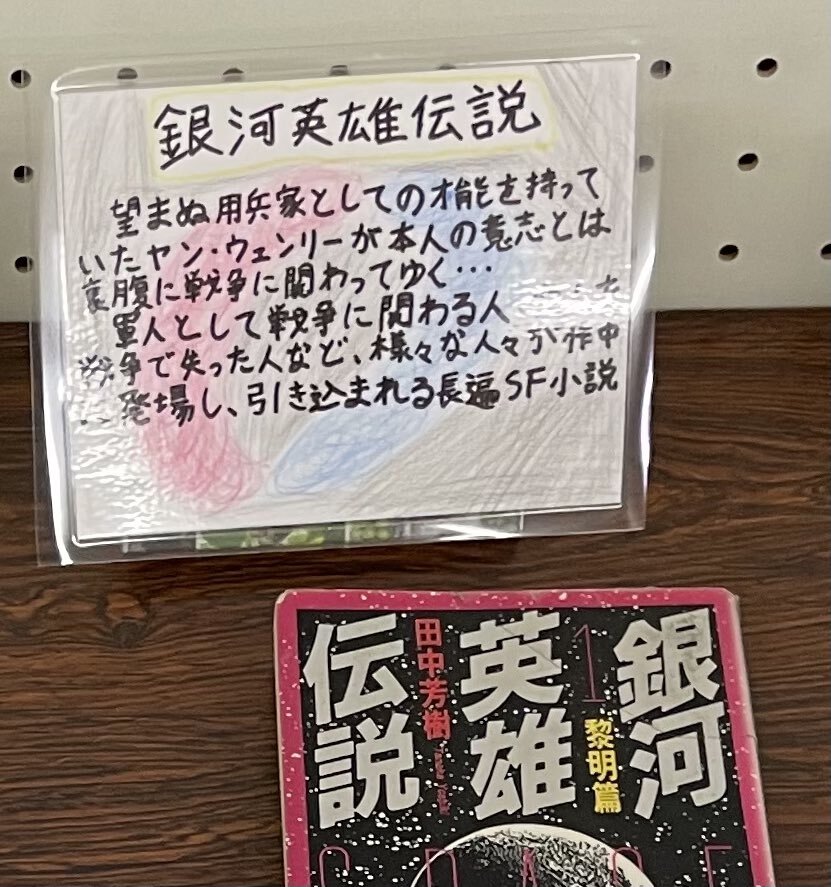 銀河英雄伝説
望まぬ用兵家としての才能を持って
いたヤン・ウェンリーが本人の意志とは
裏腹に戦争に関わってゆく…
軍人として戦争に関わる人
戦争で失った人など、様々な人々が作中
登場し、引き込まれる長編SF小説
銀河
英雄
伝説
1
黎明篇
田中芳樹